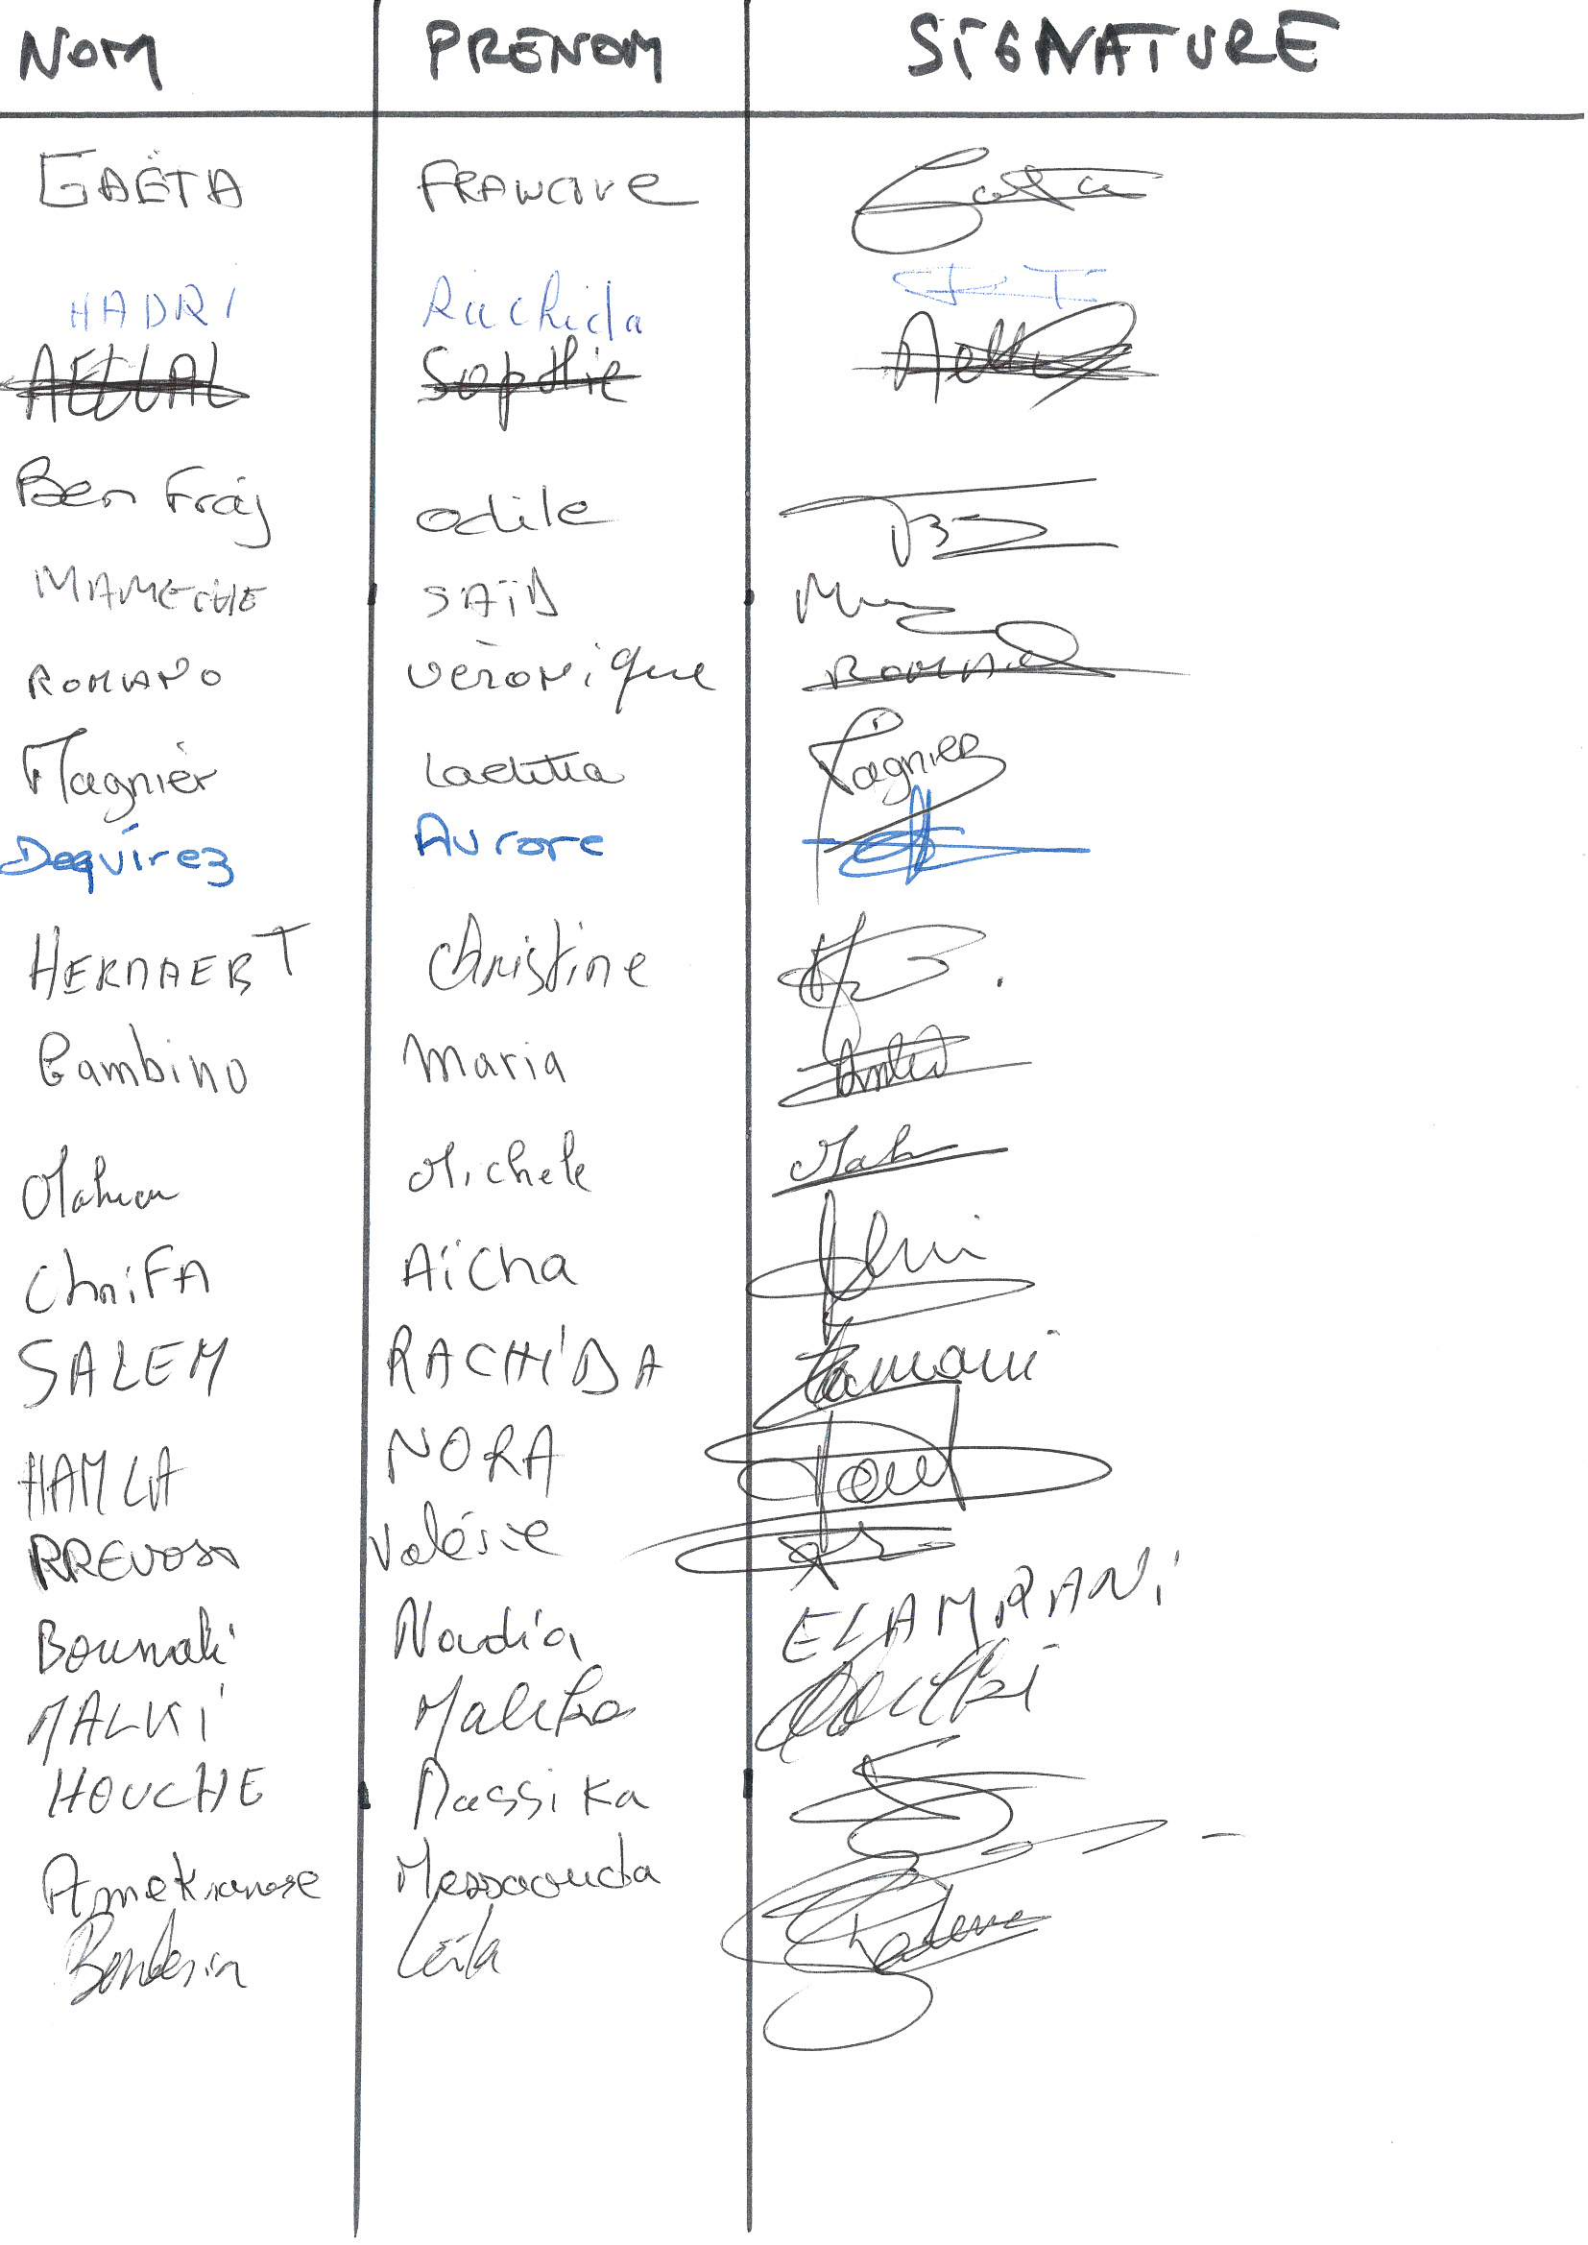 NOM PRENOM SIGNATURE
GAËTA FRANCINE Gaëta
HADRI Rachida
AELLAL Sophie
Ben Fraj Odile
MAMECHE SAÏD
ROMANO Véronique ROMANO
Magnier Laetitia Magnier
Dequirez Aurore
HERNAERT Christine
Gambino Maria
Mahieu Michele
ChriFA Aïcha
SALEM RACHIDA
HAMLA NORA
PREVOST Valérie
Bounaki Nadia ELAMRANI
MALKI Malika
HOUCHE Massika
Messaouda
Leïla